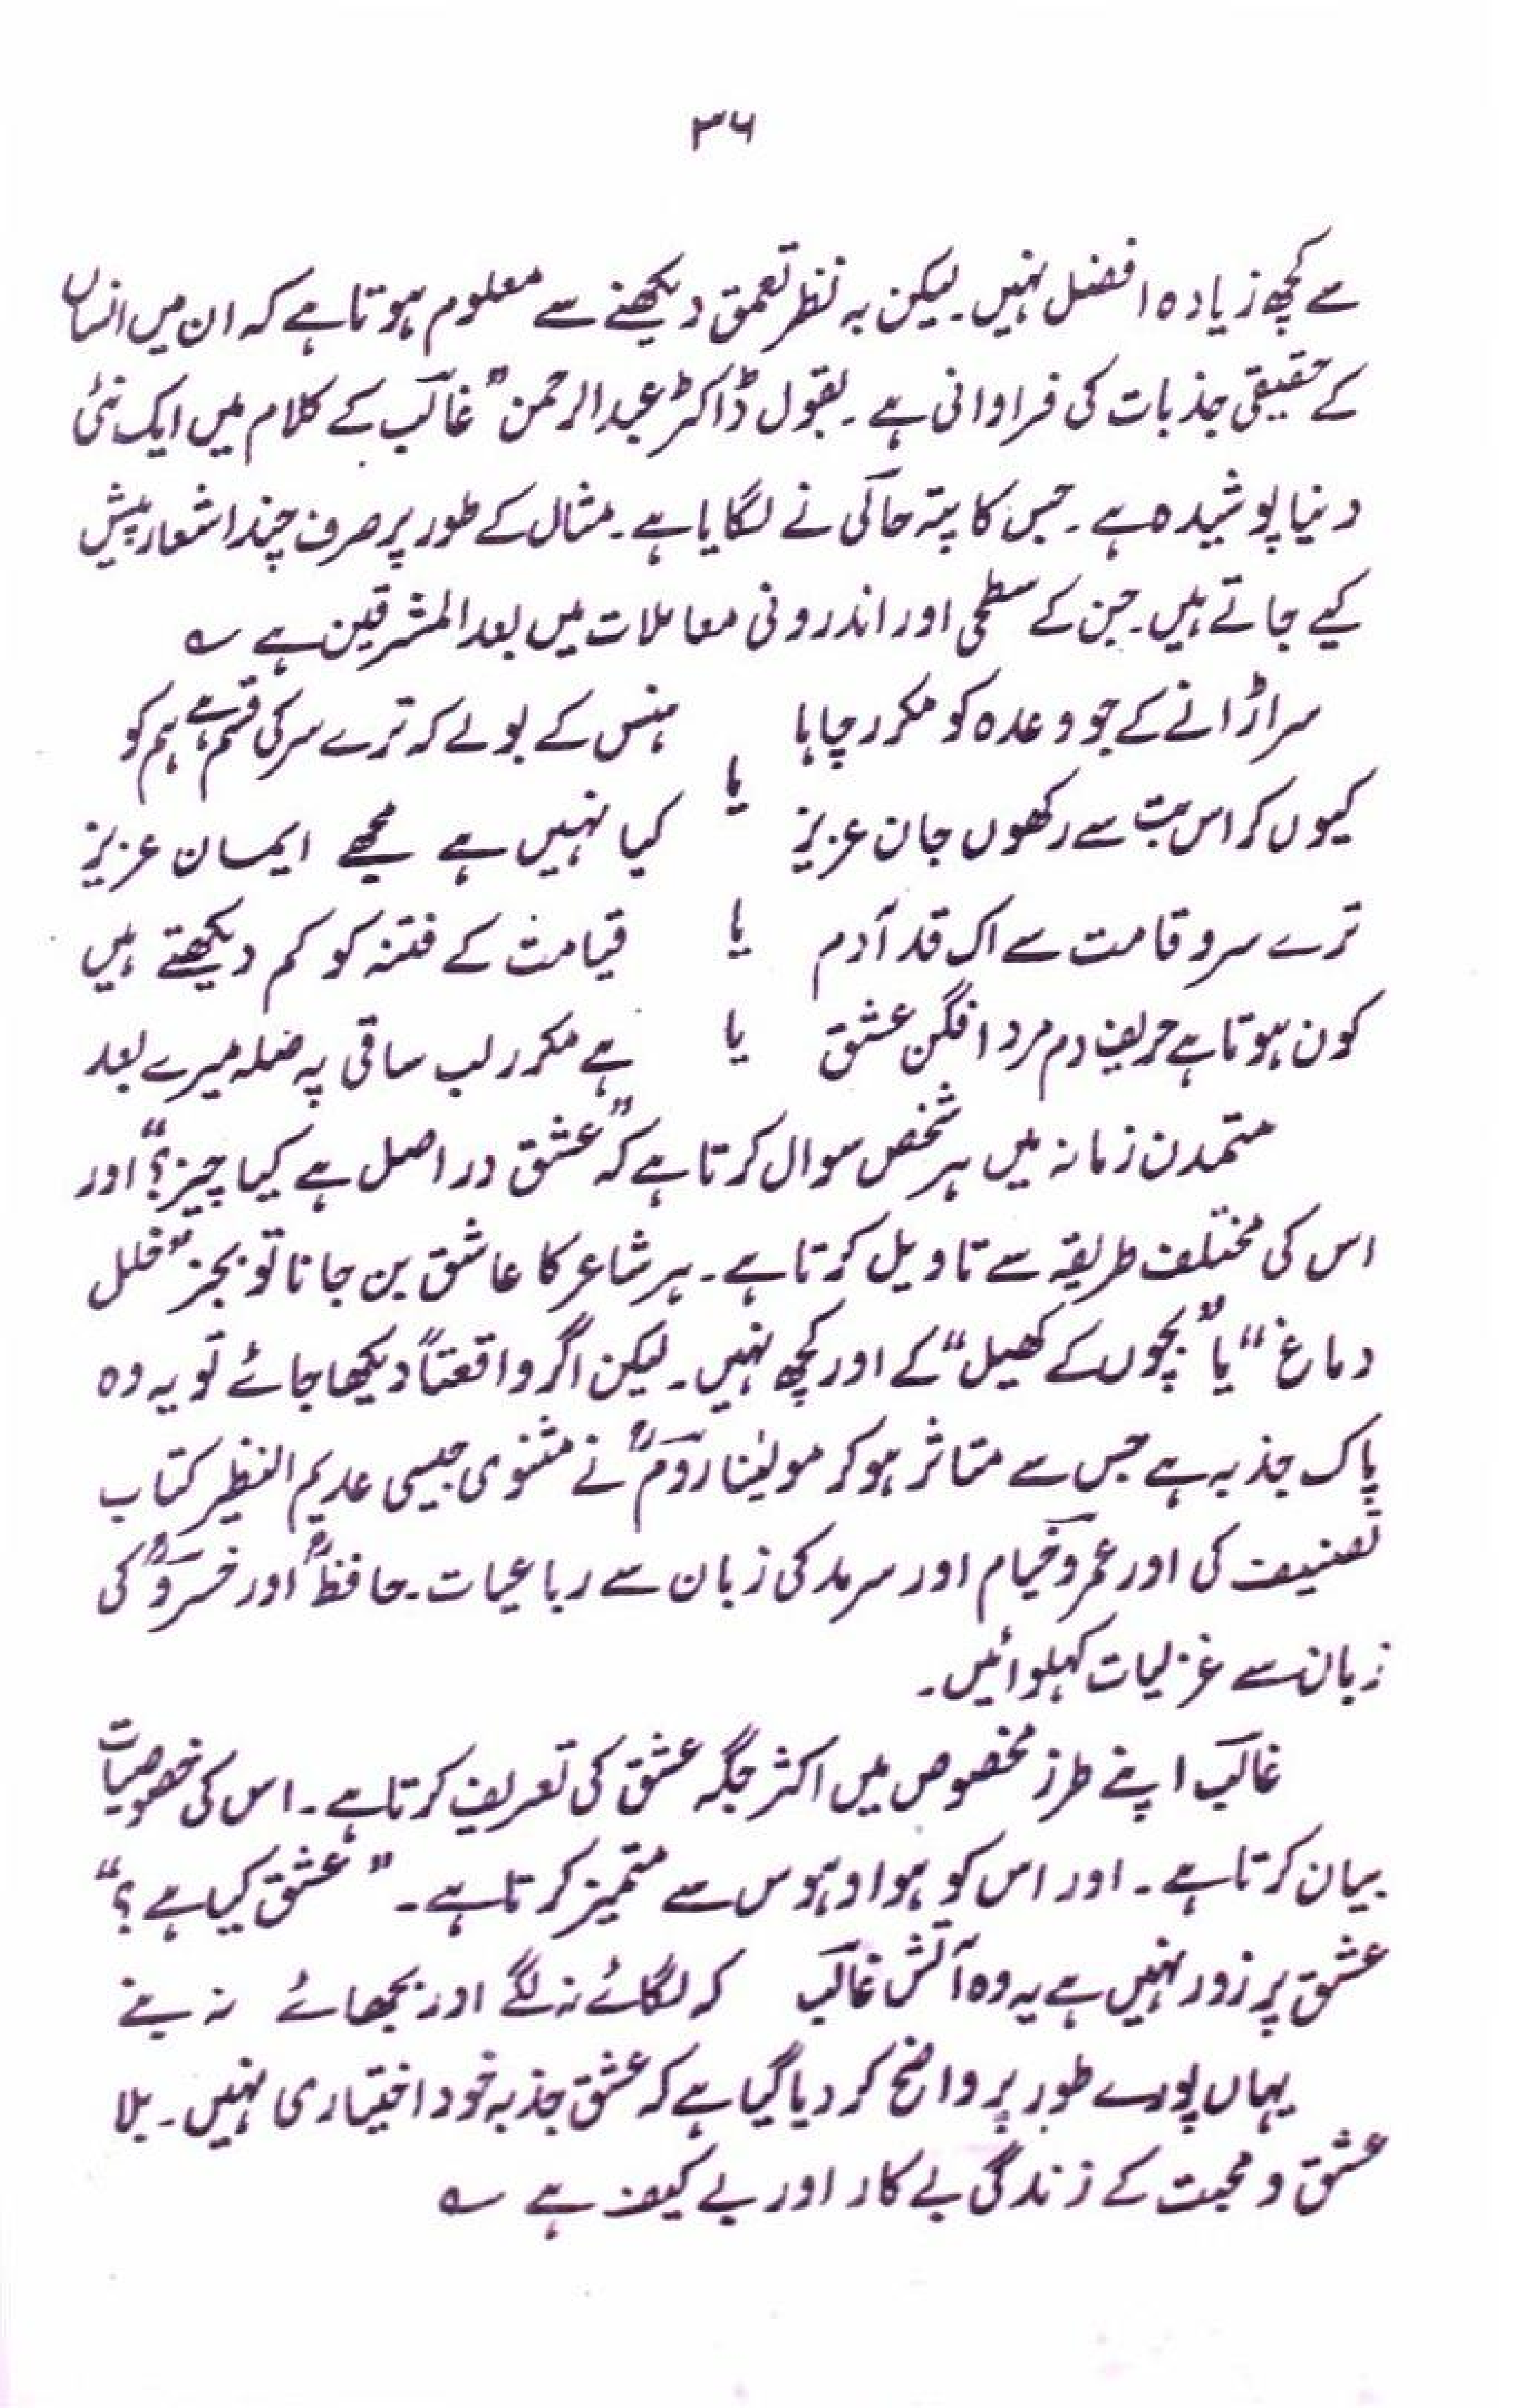 ۳۶
سے کچھ زیادہ افضل نہیں۔ لیکن بہ نظر تعمق دیکھنے سے معلوم ہوتا ہے کہ ان میں انساں
کے حقیقی جذبات کی فراوانی ہے۔ بقول ڈاکٹر عبدالرحمن "غالب کے کلام میں ایک نئی
دنیا پوشیدہ ہے۔ جس کا پتہ حالی نے لگایا ہے۔ مثال کے طور پر صرف چند اشعار پیش
کیے جاتے ہیں۔ جن کے سطحی اور اندرونی معاملات میں بعد المشرقین ہے ؎
سر اڑانے کے جو وعدہ کو مکرر چاہا ہنس کے بولے کہ ترے سر کی قسم ہے ہم کو
یا
کیوں کر اس بت سے رکھوں جان عزیز کیا نہیں ہے مجھے ایمان عزیز
ترے سرو قامت سے اک قد آدم یا قیامت کے فتنہ کو کم دیکھتے ہیں
کون ہوتا ہے حریف دم مرد افگن عشق یا ہے مکرر لب ساقی پہ صلہ میرے بعد
متمدن زمانہ میں ہر شخص سوال کرتا ہے کہ "عشق در اصل ہے کیا چیز؟" اور
اس کی مختلف طریقہ سے تاویل کرتا ہے۔ ہر شاعر کا عاشق بن جانا تو بجز "خلل
دماغ" یا "بچوں کے کھیل" کے اور کچھ نہیں۔ لیکن اگر واقعتاً دیکھا جائے تو یہ وہ
پاک جذبہ ہے جس سے متاثر ہو کر مولینا رومؒ نے مثنوی جیسی عدیم النظیر کتاب
تصنیف کی اور عمر و خیام اور سرمد کی زبان سے رباعیات۔ حافظؒ اور خسروؒ کی
زبان سے غزلیات کہلوائیں۔
غالب اپنے طرز مخصوص میں اکثر جگہ عشق کی تعریف کرتا ہے۔ اس کی خصوصیات
بیان کرتا ہے۔ اور اس کو ہوا و ہوس سے متمیز کرتا ہے۔ "عشق کیا ہے؟"
عشق پر زور نہیں ہے یہ وہ آتش غالب کہ لگائے نہ لگے اور بجھائے نہ بنے
یہاں پورے طور پر واضح کر دیا گیا ہے کہ عشق جذبہ خود اختیاری نہیں۔ بلا
عشق و محبت کے زندگی بے کار اور بے کیف ہے ؎